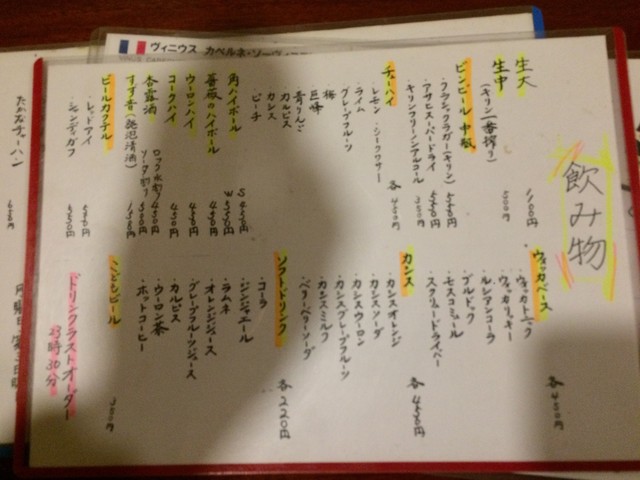 ヴィニウス カベルネ・ソーヴィ
飲み物
生大 1100円
生中 500円
(キリン一番搾り)
ビンビール 中瓶
・クラシックラガー(キリン) 550円
・アサヒスーパードライ 550円
・キリンフリーノンアルコール 350円
チューハイ 各450円
・レモン ・シークワサー
・ライム
・グレープフルーツ
・梅
・巨峰
・青りんご
・カルピス
・カシス
・ピーチ
角ハイボール S 450円
W 550円
薔薇のハイボール 450円
ウーロンハイ 450円
コークハイ 450円
杏露酒 ロック・水割り 450円
ソーダ割り 500円
すず音(発泡清酒) 1500円
ビールカクテル
・レッドアイ 550円
・シャンディガフ 550円
ウォッカベース 各450円
・ウォッカトニック
・ウォッカリッキー
・ルシアンコーラ
・ブルドック
・モスコミュール
・スクリュードライバー
カシス 各450円
・カシスオレンジ
・カシスソーダ
・カシスウーロン
・カシスグレープフルーツ
・カシスミルク
・ベリーベリーソーダ
ソフトドリンク 各220円
・コーラ
・ジンジャエール
・ラムネ
・オレンジジュース
・グレープフルーツジュース
・カルピス
・ウーロン茶
・ホットコーヒー
こどもビール 350円
ドリンクラストオーダー
23時30分
たかなチャーハン 650円